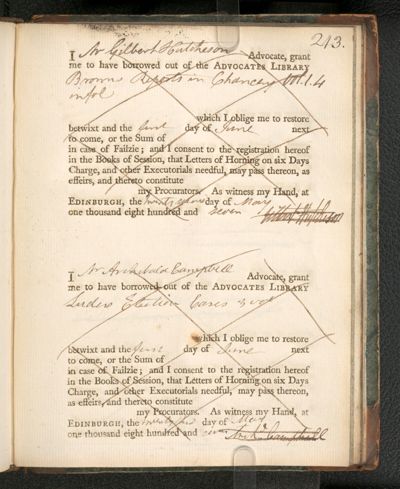 213.
I Mr Gilbert Hutcheson Advocate, grant
me to have borrowed out of the ADVOCATES LIBRARY
Browns Reports in Chancery Vol. 1. 4
in fol
which I oblige me to restore
betwixt and the first day of June next
to come, or the Sum of
in case of Failzie; and I consent to the registration hereof
in the Books of Session, that Letters of Horning on six Days
Charge, and other Executorials needful, may pass thereon, as
effeirs, and thereto constitute
my Procurators. As witness my Hand, at
EDINBURGH, the day of May
one thousand eight hundred and seven Gilbert Hutcheson
I Mr Archibald Campbell Advocate, grant
me to have borrowed out of the ADVOCATES LIBRARY
Luders Election Cases 3 vol
which I oblige me to restore
betwixt and the first day of June next
to come, or the Sum of
in case of Failzie; and I consent to the registration hereof
in the Books of Session, that Letters of Horning on six Days
Charge, and other Executorials needful, may pass thereon,
as effeirs, and thereto constitute
my Procurators. As witness my Hand, at
EDINBURGH, the day of May
one thousand eight hundred and seven Arch. Campbell